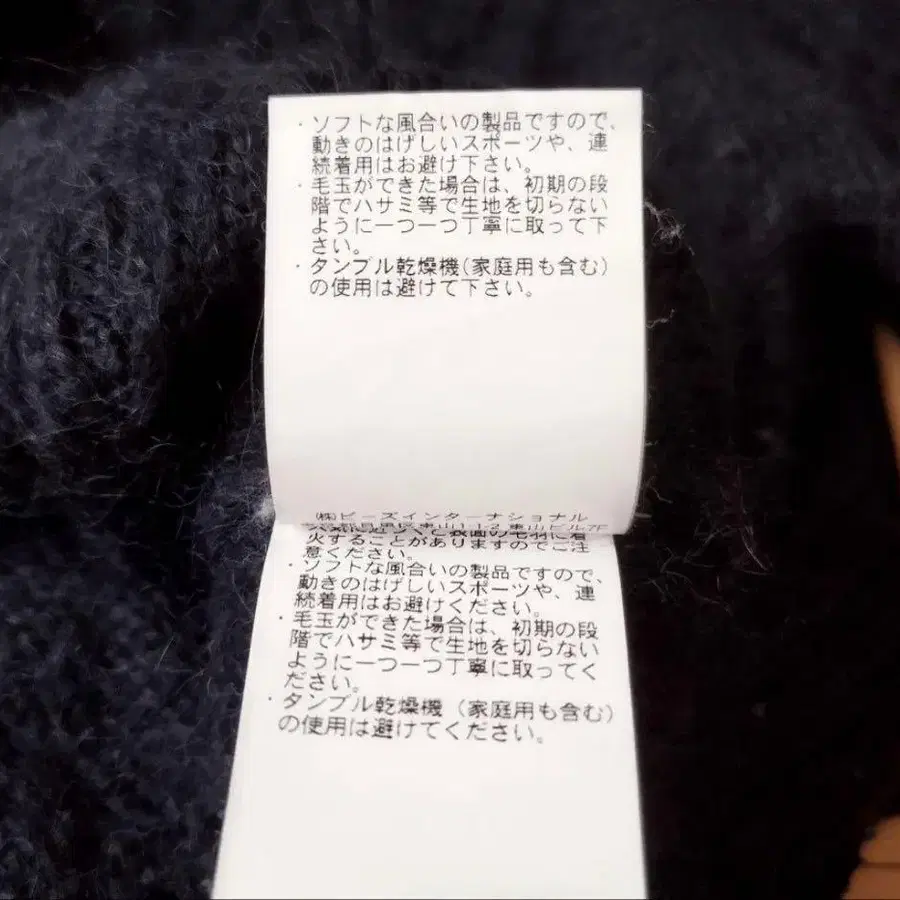 ・ソフトな風合いの製品ですので、
動きのはげしいスポーツや、連
続着用はお避け下さい。
・毛玉ができた場合は、初期の段
階でハサミ等で生地を切らない
ように一つ一つ丁寧に取って下
さい。
・タンブル乾燥機(家庭用も含む)
の使用は避けて下さい。
(株)ビーズインターナショナル
火することがありますのでご注
意ください。
・ソフトな風合いの製品ですので、
動きのはげしいスポーツや、連
続着用はお避けください。
・毛玉ができた場合は、初期の段
階でハサミ等で生地を切らない
ように一つ一つ丁寧に取ってく
ださい。
・タンブル乾燥機(家庭用も含む)
の使用は避けてください。